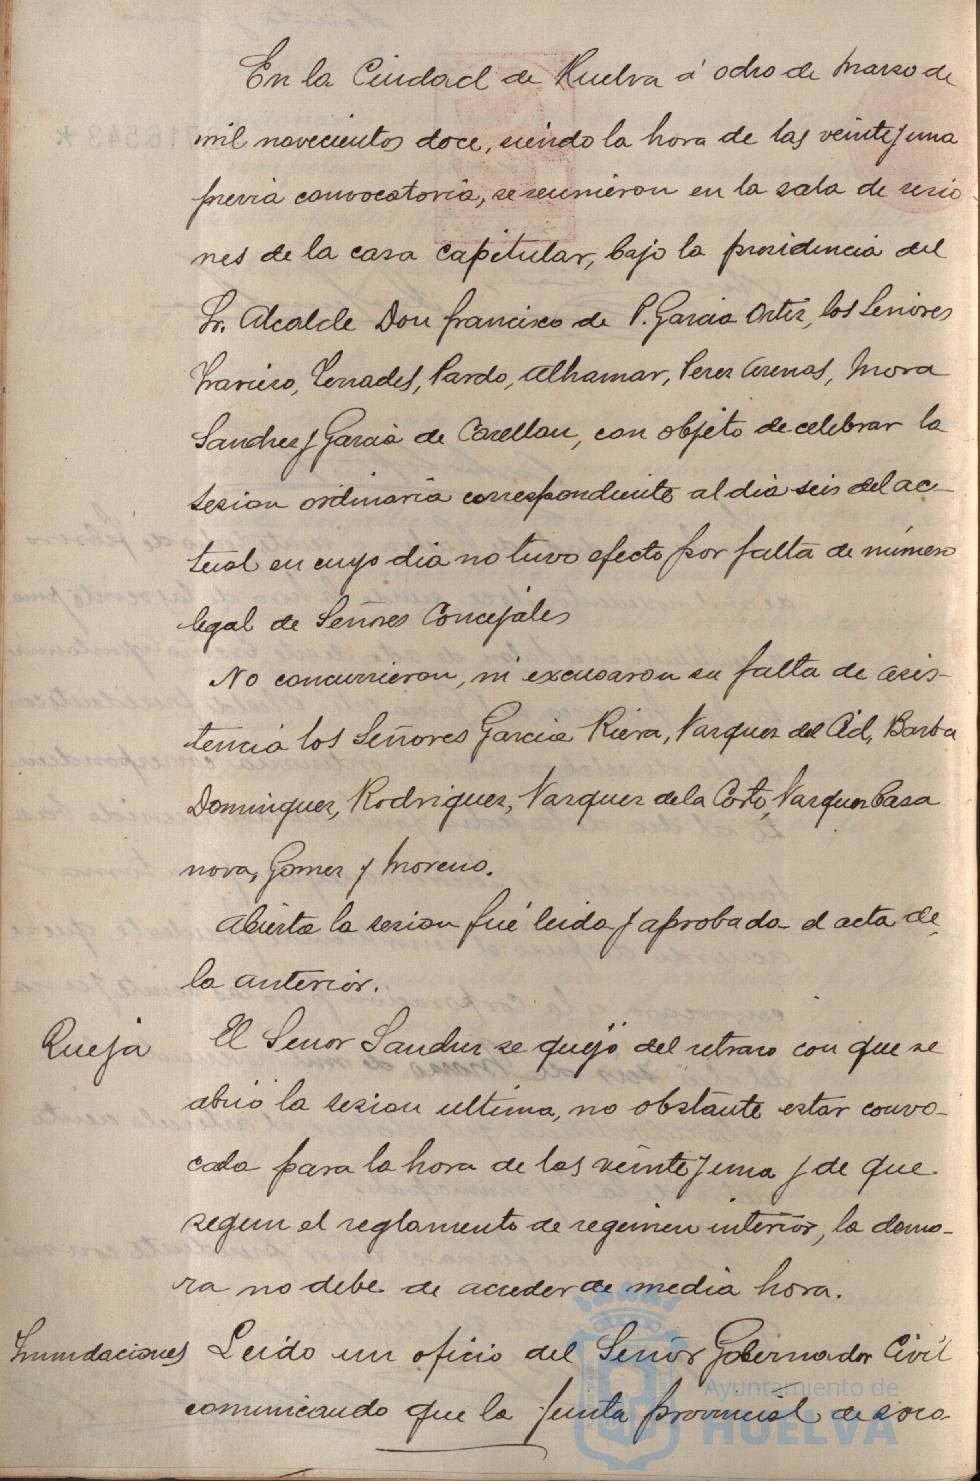 En la Ciudad de Huelva á ocho de Marzo de
mil novecientos doce, siendo la hora de las veinte y una
previa convocatoria, se reunieron en la sala de sesio
nes de la casa Capitular, bajo la presidencia del
Sr. Alcalde Don Francisco de P. Garcia Ortiz, los Señores
Tenades, Pardo, Alhamar, Perez Arenas, Mora
Sanchez y Garcia de Casellau, con objeto de celebrar la
sesion ordinaria correspondiente al dia seis del ac-
tual en cuyo dia no tuvo efecto por falta de número
legal de Señores Concejales
No concurrieron, ni excusaron su falta de asis-
tencia los Señores Garcia Riera, Vazquez del Cid, Barba
Dominguez, Rodriguez, Vazquez de la Corte, Vazquez Casa
nova, Gomez y Moreno.
Abierta la sesion fué leida y aprobada el acta de
la anterior.
Queja El Señor Sanchez se quejó del retraso con que se
abrió la sesion ultima, no obstante estar convo-
cada para la hora de las veinte y una y de que
segun el reglamento de regimen interior, la demo-
ra no debe de acceder de media hora.
Inundaciones Leido un oficio del Señor Gobernador Civil
comunicando que la Junta provincial de soco
716.543 *
Ayuntamiento de
HUELVA